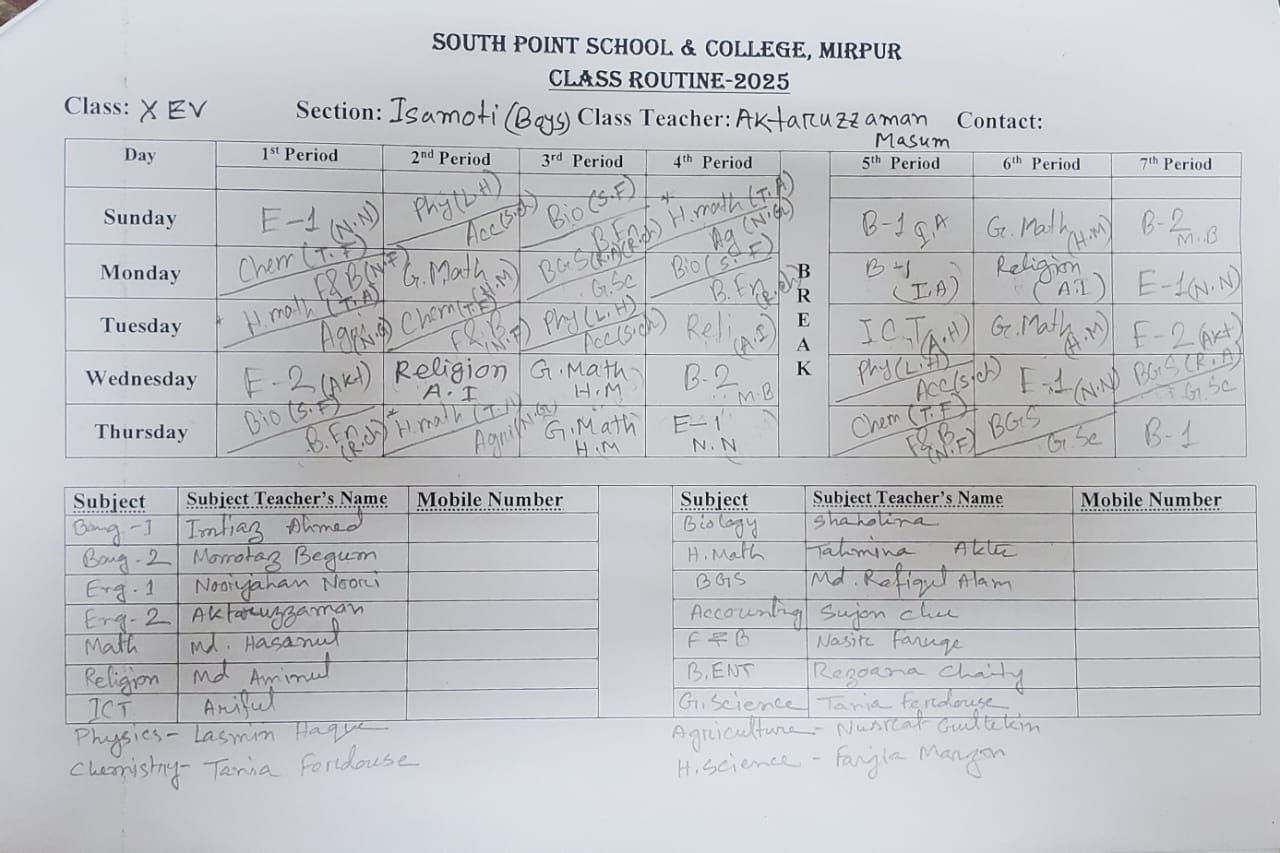 SOUTH POINT SCHOOL & COLLEGE, MIRPUR
CLASS ROUTINE-2025
Class: X EV Section: Isamoti (Boys) Class Teacher: Aktaruzzaman Masum Contact:
Day 1st Period 2nd Period 3rd Period 4th Period BREAK 5th Period 6th Period 7th Period
Sunday E-1 (N.N) Phy (L.H) / Acc (S.ch) Bio (S.F) / B.En (R.ch) * H.math (T.A) / Ag (N.G) B-1 I.A G.Math (H.M) B-2 M.B
Monday Chem (T.F) / F&B (N.F) G.Math (H.M) BGS (R.A) / G.Sc Bio (S.F) / B.En (R.ch) B-1 (I.A) Religion (A.I) E-1 (N.N)
Tuesday * H.math (T.A) / Agri (N.G) Chem (T.F) / F&B (N.F) Phy (L.H) / Acc (S.ch) Reli (A.I) ICT (A.H) G.Math (H.M) E-2 (Akt)
Wednesday E-2 (Akt) Religion A.I G.Math H.M B-2 M.B Phy (L.H) / Acc (S.ch) E-1 (N.N) BGS (R.A) / G.Sc
Thursday Bio (S.F) / B.En (R.ch) * H.math (T.A) / Agri (N.G) G.Math H.M E-1 N.N Chem (T.F) / F&B (N.F) BGS / G.Sc B-1
Subject Subject Teacher's Name Mobile Number Subject Subject Teacher's Name Mobile Number
Bang-1 Imtiaz Ahmed Biology Shaholina
Bang-2 Momotaz Begum H.Math Tahmina Akter
Eng-1 Noorjahan Noori BGS Md. Rafiqul Alam
Eng-2 Aktaruzzaman Accounting Sujon Chu
Math Md. Hasanul F & B Nasir Faruqe
Religion Md Aminul B.ENT Rezoana Chaity
ICT Ariful G.Science Tania Ferdouse
Physics- Lasmin Haque Agriculture - Nusrat Gultekin
Chemistry- Tania Ferdouse H.Science - Farjla